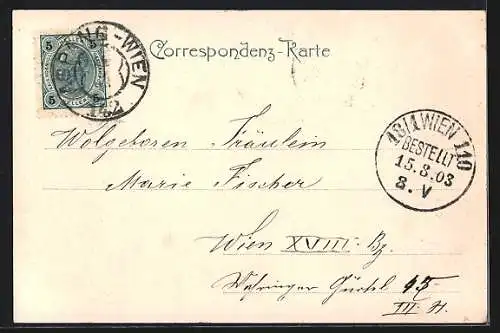 5 5
5 5
ASPANG-WIEN
Correspondenz-Karte
18/1 WIEN 110
BESTELLT
15.3.03
8.V
Wolgeboren Fräulein
Marie Fischer
Wien XVIII. Bz.
Währinger Gürtel 15
III. St.